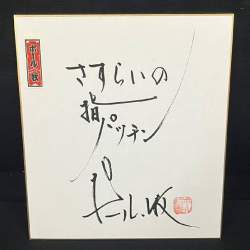 ポール牧
さすらいの
指パッチン
ポール牧